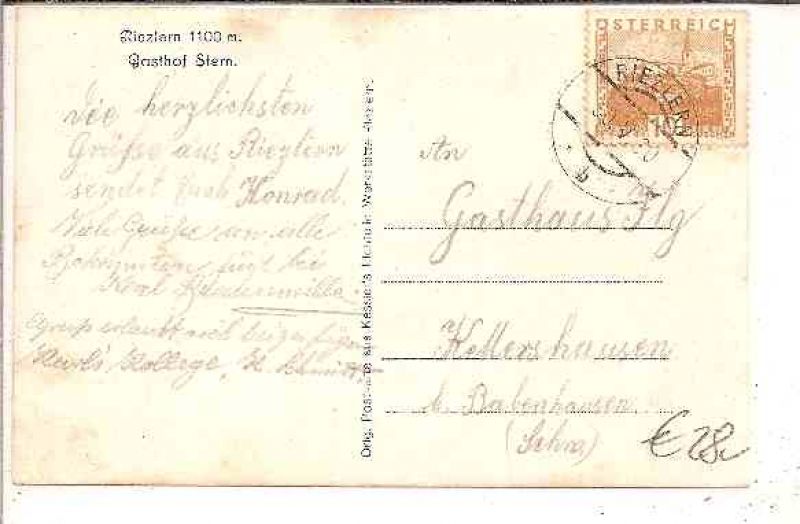 Riezlern 1100 m.
Gasthof Stern.
die herzlichsten
Grüße aus Riezlern
sendet Euch Konrad.
Viele Grüße an alle
Bekannten fügt bei
Karl
Gruß erlaubt sich beizufügen
Karl's Kollege, K.
Orig. Postkarte aus Kessler's Lichtbild Werkstätte Riezlern
ÖSTERREICH
10
RIEZLERN
b
An
Gasthaus Ilg
Kettershausen
b. Babenhausen
(Schwa)
€ 28